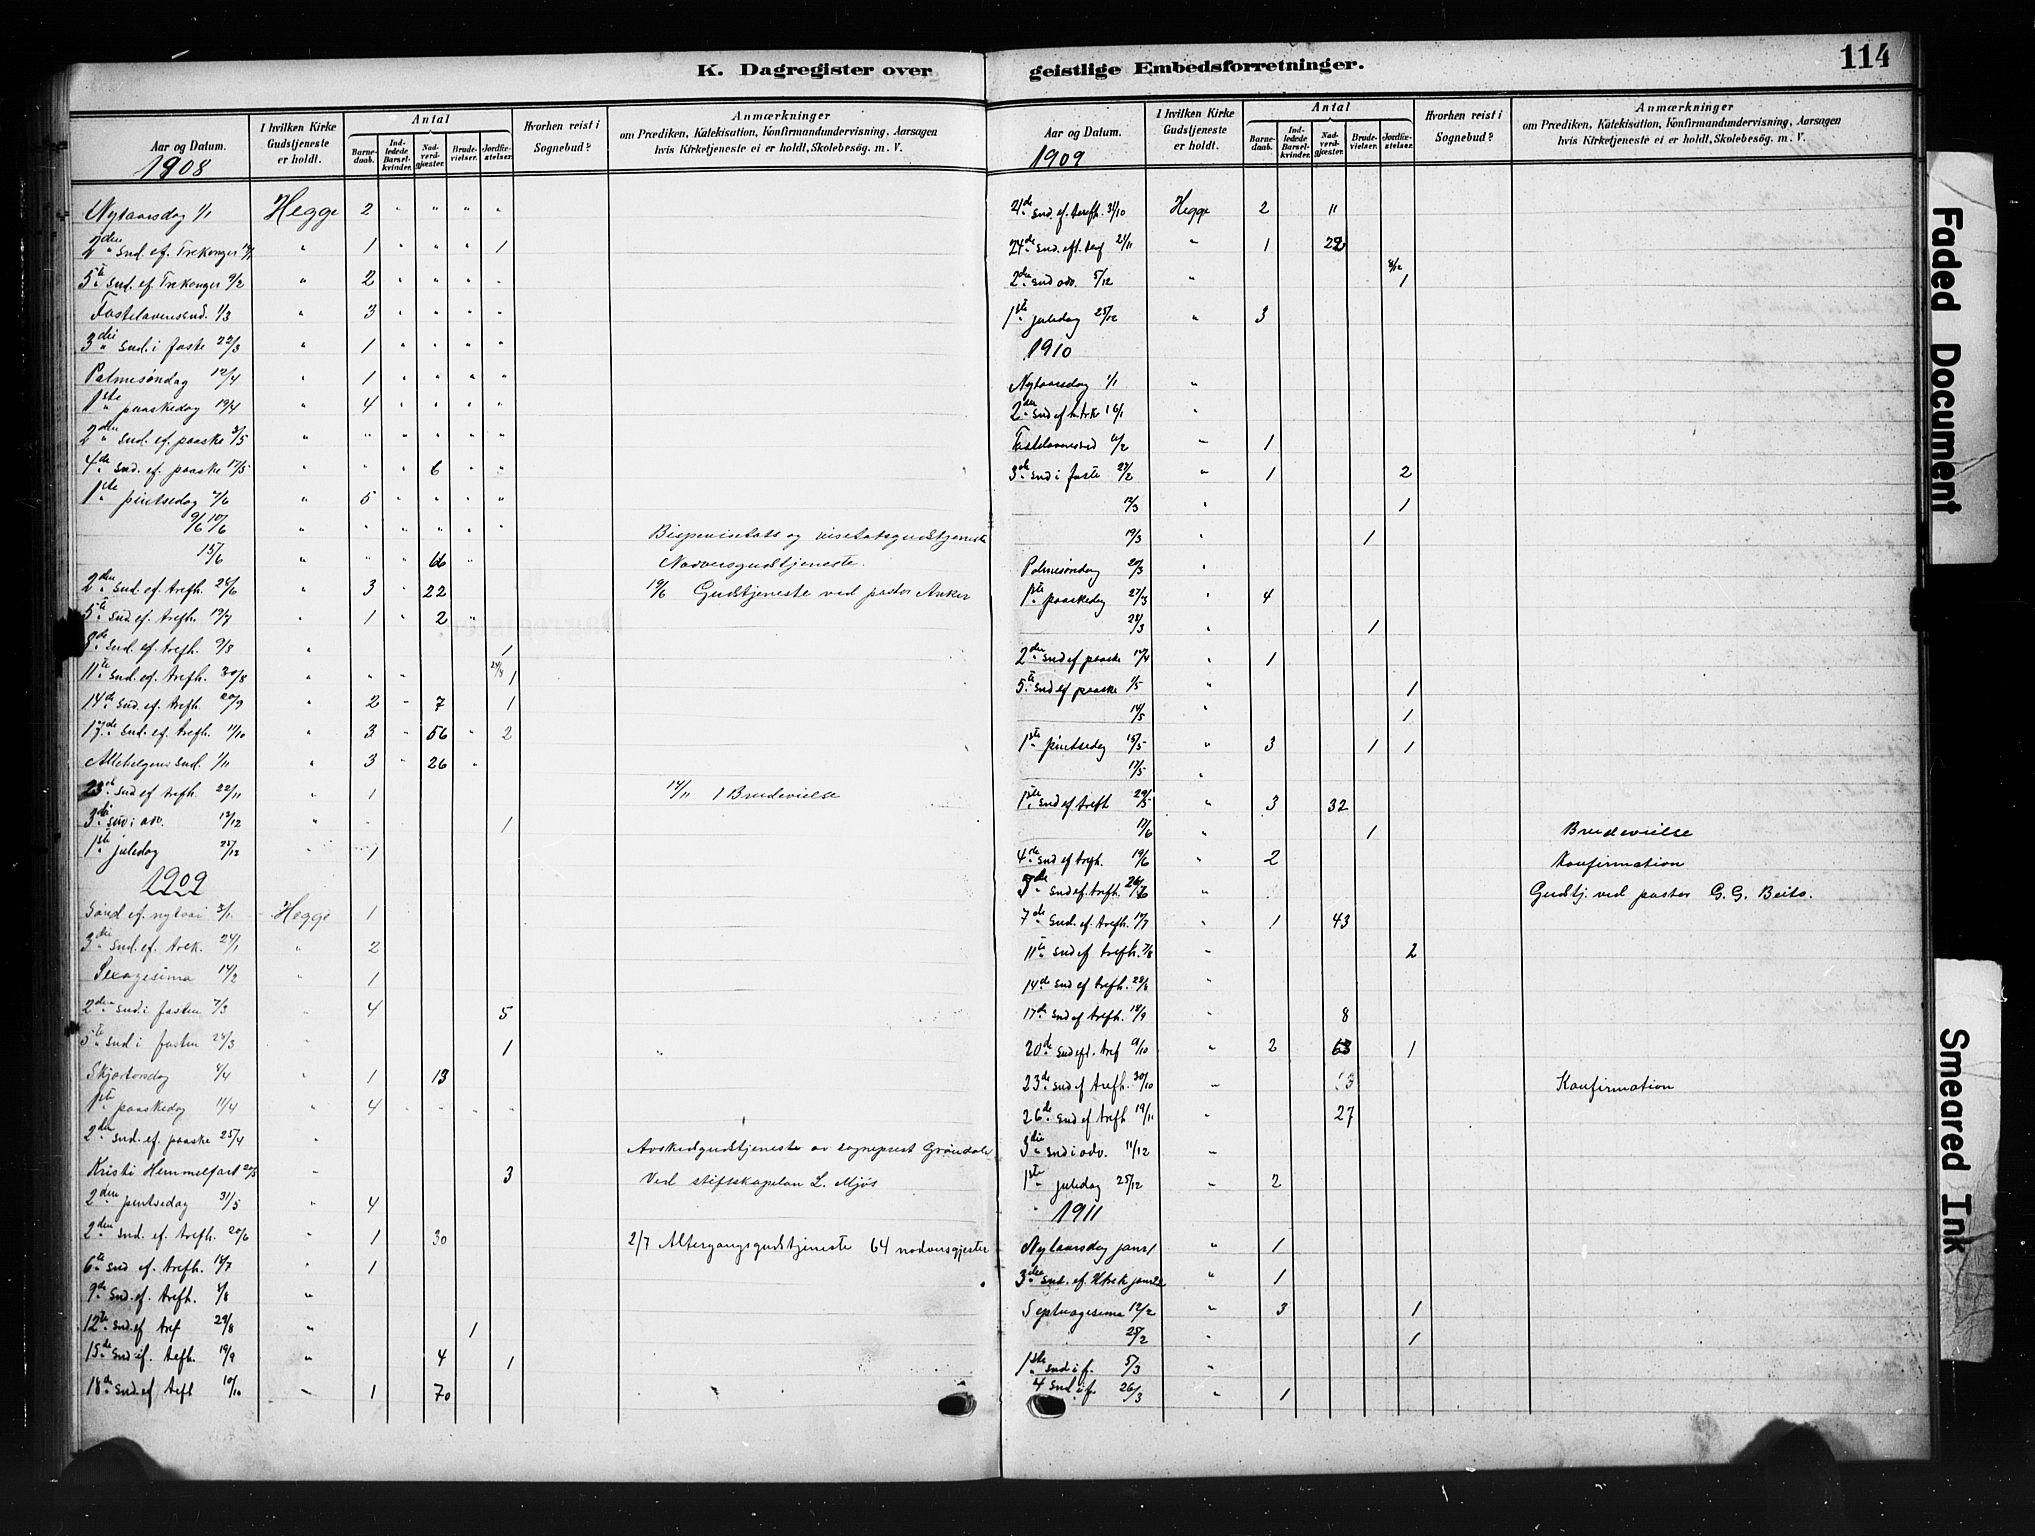 K. Dagregister over
Aar og Datum.
I hvilken Kirke Gudstjeneste er holdt.
Antal
Barne-daab.
Ind-ledede Barsel-kvinder.
Nad-verd-gjester.
Brude-vielser.
Jordfæ-stelser.
Hvorhen reist i Sognebud?
Anmærkninger
om Prædiken, Katekisation, Konfirmandundervisning, Aarsagen
hvis Kirketjeneste ei er holdt, Skolebesøg. m. V.
1908
Nytaarsdag 1/1 Hegge 2 " " " "
2den Snd. ef. Trekonger 19/1 " 1 " " " 1
5te Snd. ef. Trekonger 9/2 " 2 " " " "
Fastelavenssnd. 1/3 " 3 " " " "
3die Snd. i faste 22/3 " 1 " " " "
Palmesøndag 12/4 " 1 " " " "
1ste paaskedag 19/4 " 4 " " " "
2den Snd. ef. paaske 3/5 " " " " " "
4de Snd. ef. paaske 17/5 " " " 6 " "
1ste pintsedag 7/6 " 5 " " " "
9/6 10/6 " " " " " " Bispevisitats og visitatsgudstjeneste
15/6 " " " 66 " Nadversgudstjeneste.
2den Snd. ef. trefh. 28/6 " 3 " 22 19/6 Gudstjeneste ved pastor Anker
5te Snd. ef. trefh. 19/7 " 1 " 2 "
8de Snd. ef. trefh. 9/8 " 1
11te Snd. ef. trefh. 30/8 " " " 24/8 1
14de Snd. ef. trefh. 20/9 " 2 " 7 1
17de Snd. ef. trefh. 11/10 " 3 " 56 " 2
Allehelgens Snd. 1/11 " 3 " 26 "
23de Snd ef trefh. 22/11 " 1 14/11 1 Brudevielse
3die Snd i adv. 13/12 " 1
1ste juledag 25/12 " 1
1909
Sønd ef. nytaar 3/1 Hegge 1
3die Snd. ef. trek. 24/1 " 2
Sexagesima 14/2 " 1
2den Snd i fasten 7/3 " 4 5
5te Snd i fasten 28/3 " 1 "
Skjærtorsdag 8/4 " 1 13
1ste paaskedag 11/4 " 4 " " " "
2den Snd. ef. paaske 25/4 " Avskedgudstjeneste av sogneprest Grøndale
Kristi Hemmelfart 20/5 " 3 Ved stiftskapelan L. Mjøs
2den pintsedag 31/5 " 4
2den Snd. ef. trefh. 20/6 " 1 30 2/7 Altergangsgudstjeneste 64 nadversgjester
6te Snd ef. trefh. 18/7 " 1
9de Snd. ef. trefh. 8/8 "
12te Snd. ef tref 29/8 " 1
15de Snd. ef. trefh. 19/9 " 4 1
18de Snd. ef trefh 10/10 " 1 70
geistlige Embedsforretninger.
114
Aar og Datum.
I hvilken Kirke Gudstjeneste er holdt.
Antal
Barne-daab.
Ind-ledede Barsel-kvinder.
Nad-verd-gjester.
Brude-vielser.
Jordfæ-stelser.
Hvorhen reist i Sognebud?
Anmærkninger
om Prædiken, Katekisation, Konfirmandundervisning, Aarsagen
hvis Kirketjeneste ei er holdt, Skolebesög. m. V.
1909
21de Snd. ef. trefh. 31/10 Hegge 2 11
24de Snd. eft. tref 21/11 " 1 22
2den Snd adv. 5/12 " 8/12 1
1ste juledag 25/12 " 3
1910
Nytaarsdag 1/1 "
2den Snd ef h. trk 16/1 "
Fastelavenssnd 6/2 " 1
3de Snd i faste 27/2 " 1 2
12/3 " 1
19/3 " 1
Palmesøndag 20/3 "
1ste paaskedag 27/3 " 4
28/3 " 1
2den Snd ef paaske 10/4 " 1
5te Snd ef paaske 1/5 " 1
14/5 " 1
1ste pintsedag 15/5 " 3 1 1
17/5 "
1ste Snd ef trefh 29/5 " 3 32
17/6 " 1 Brudevielse
4de Snd ef trefh. 19/6 " 2 Konfirmation
5de Snd ef. trefh. 26/6 " Gudstj. ved pastor G. G. Beito.
7de Snd. ef. trefh. 10/7 " 1 43
11te Snd ef trefh. 7/8 " 2
14de Snd ef trefh. 28/8 "
17de Snd ef trefh. 18/9 " 8
20de Snd eft. tref 9/10 " 2 63 1
23de Snd ef trefh. 30/10 " Konfirmation
26de Snd ef trefh 19/11 " 27
3die Snd i adv. 11/12 "
1ste juledag 25/12 " 2
1911
Nytaarsdag jan 1 " 1
3die Snd. ef. H trek jan 22 " 1
Septuagesima 12/2 " 3 1
25/2 " 1
1ste Snd i f. 5/3 "
4 Snd i f 26/3 " 1
Faded Document
Smeared Ink